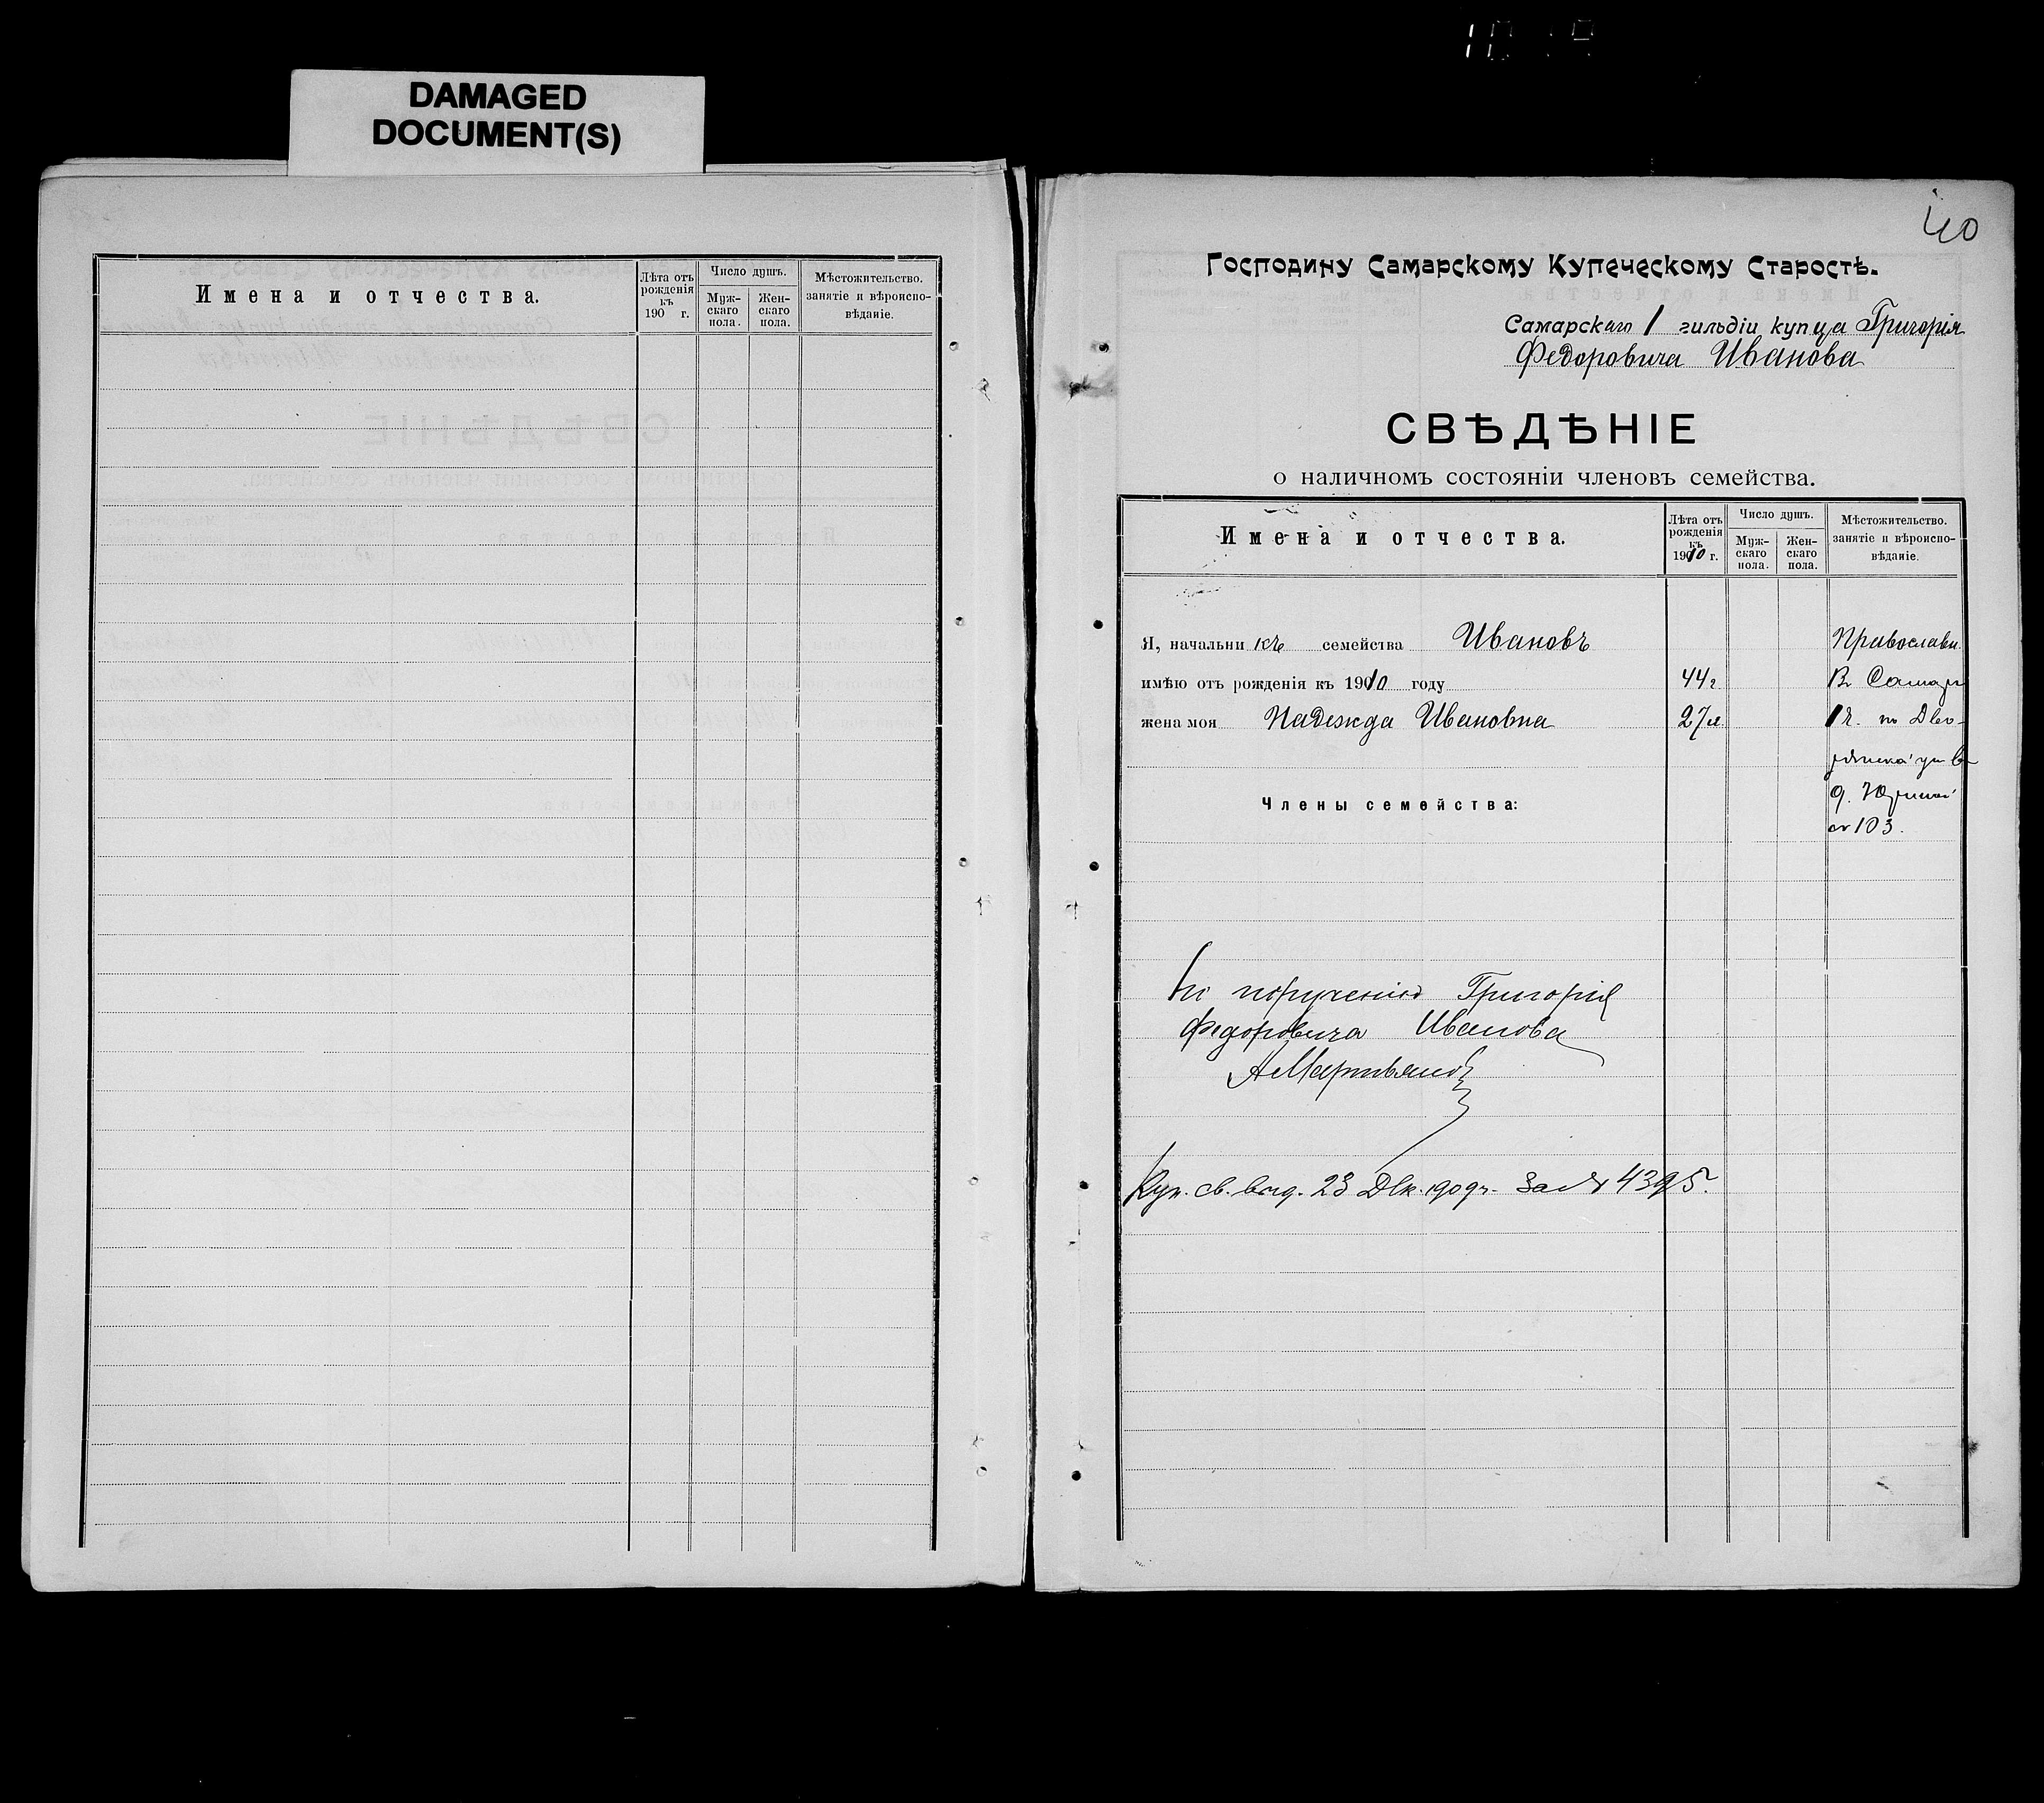 DAMAGED
DOCUMENT(S)
Имена и отчества.
Лѣта отъ рожденія къ 190 г.
Число душъ.
Мужскаго пола.
Женскаго пола.
Мѣстожительство. занятіе и вѣроисповѣданіе.
40
Господину Самарскому Купеческому Старостѣ.
Самарскаго 1 гильдіи купца Григорія
Федоровича Иванова
СВѢДѢНІЕ
о наличномъ состояніи членовъ семейства.
Имена и отчества.
Лѣта отъ рожденія къ 1910 г.
Число душъ.
Мужскаго пола.
Женскаго пола.
Мѣстожительство. занятіе и вѣроисповѣданіе.
Я, начальникъ семейства Ивановъ Православн.
имѣю отъ рожденія къ 1910 году 44 г. В Самарѣ
жена моя Надежда Ивановна 27 л. 1 ч. по Дво-
рянской ул в
Члены семейства:
д.
№ 103.
по порученію Григорія
Федоровича Иванова
А Мартьянов
Куп. св. выд. 23 Дек. 1909 г. за № 4395.